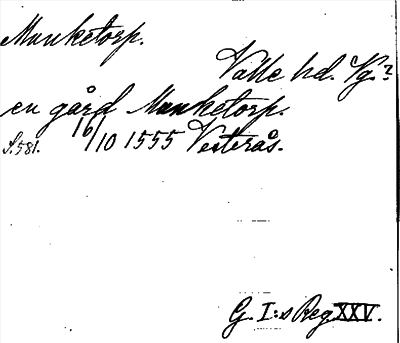 Munketorp.
Valle hd. Vg.?
en gård Munketorp.
S.581. 16/10 1555 Vesterås.
G. I:s Reg XXV.